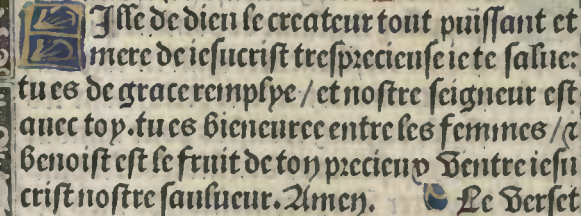 Ille de dieu le createur tout puissant et
mere de iesucrist tresprecieuse ie te salue:
tu es de grace remplye / et nostre seigneur est
auec toy. tu es bieneuree entre les femmes / ⁊
benoist est le fruit de ton precieux ventre iesu
crist nostre saulueur. Amen. Le verset